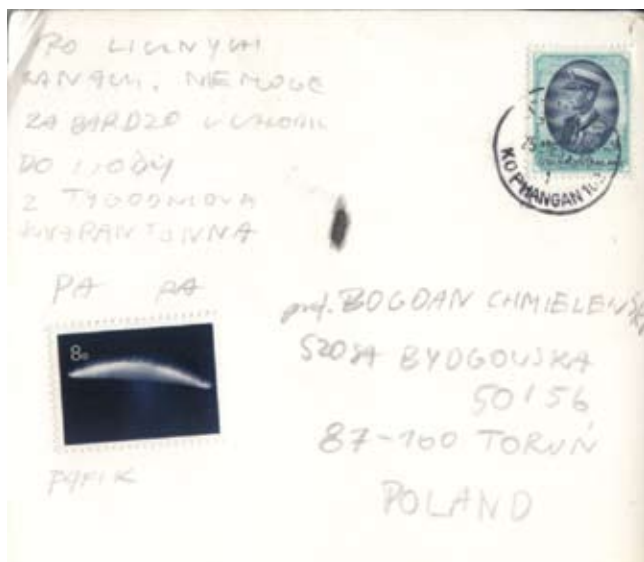 PO LICZNYCH
RANACH, NIE MOGĘ
ZA BARDZO WCHODZIĆ
DO WODY
Z TYGODNIOWA
KWARANTANNA
PA PA
8
PAFIK
KO PHANGAN
prof. BOGDAN CHMIELEWSKI
SZOSA BYDGOSKA
50/56
87-100 TORUŃ
POLAND